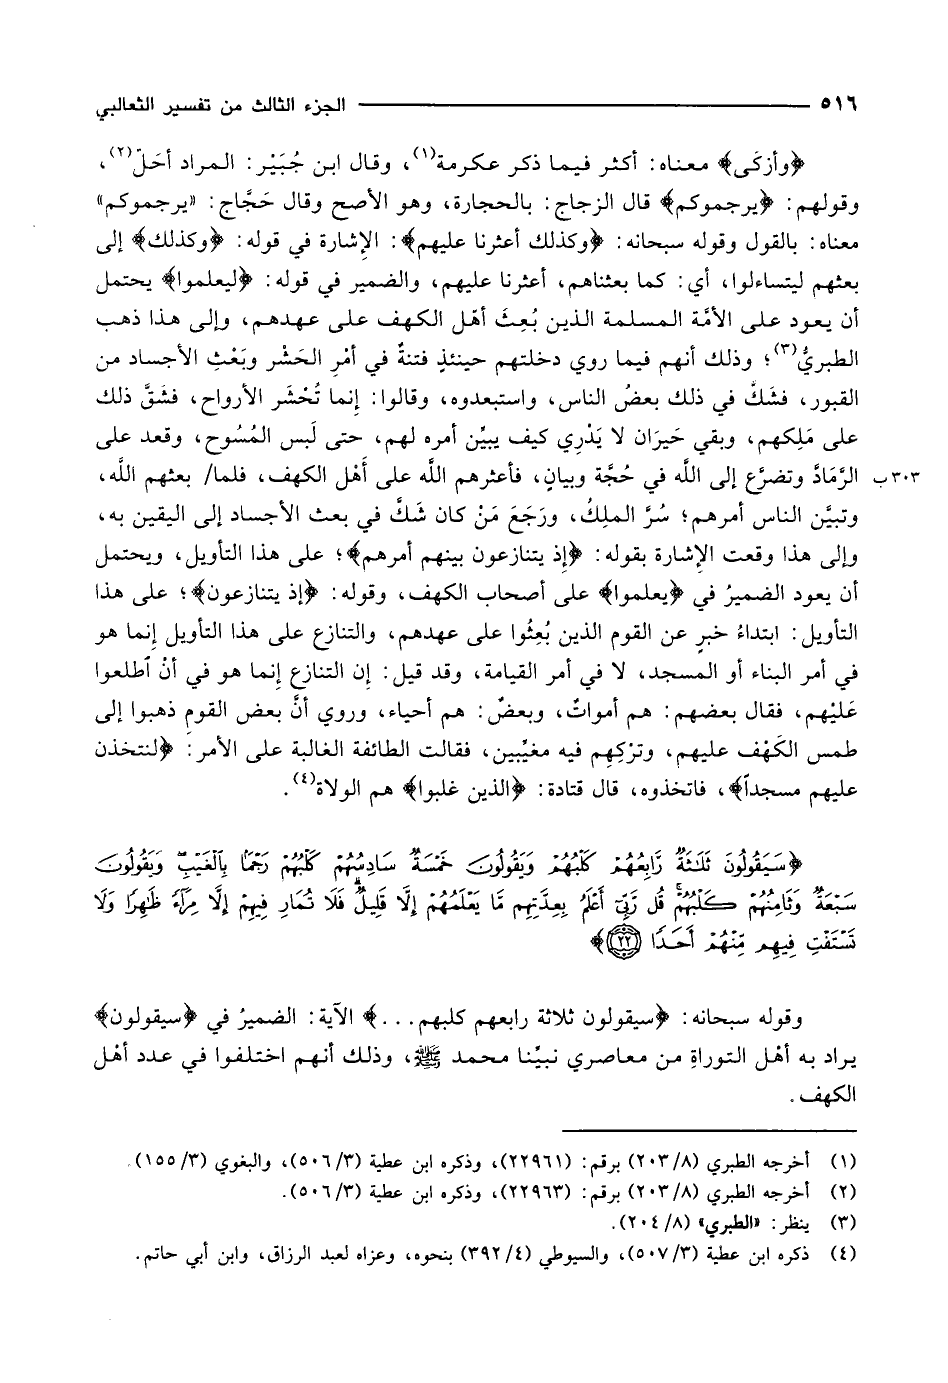 ٥١٦ الجزء الثالث من تفسير الثعالبي
﴿وأزكَى﴾ معناه: أكثر فيما ذكر عكرمة(١)، وقال ابن جُبَيْر: المراد أحَلّ(٢)،
وقولهم: ﴿يرجموكم﴾ قال الزجاج: بالحجارة، وهو الأصح وقال حَجَّاج: «يرجموكم»
معناه: بالقول وقوله سبحانه: ﴿وكذلك أعثرنا عليهم﴾: الإِشارة في قوله: ﴿وكذلك﴾ إلى
بعثهم ليتساءلوا، أي: كما بعثناهم، أعثرنا عليهم، والضمير في قوله: ﴿ليعلموا﴾ يحتمل
أن يعود على الأمَّة المسلمة الذين بُعِثَ أهْل الكهف على عهدهم، وإِلى هذا ذهب
الطبريُّ(٣)؛ وذلك أنهم فيما روي دخلتهم حينئذٍ فتنةٌ في أمْرِ الحَشْر وبَعْثِ الأجساد من
القبور، فشَكَّ في ذلك بعضُ الناس، واستبعدوه، وقالوا: إِنما تُحْشَر الأرواح، فشَقَّ ذلك
على مَلِكهم، وبقي حَيرَان لا يَدْرِي كيف يبيِّن أمره لهم، حتى لَبس المُسُوح، وقعد على
٣٠٣ ب الرَّمَادَّ وتضرَّع إلى اللَّه في حُجَّة وبيانٍ، فأعثرهم اللَّه على أَهْل الكهف، فلما/ بعثهم الله،
وتبيَّن الناس أمرهم؛ سُرَّ الملِكُ، ورَجَعَ مَنْ كان شَكَّ في بعث الأجساد إلى اليقين به،
وإلى هذا وقعت الإِشارة بقوله: ﴿إِذ يتنازعون بينهم أمرهم﴾؛ على هذا التأويل، ويحتمل
أن يعود الضميرُ في ﴿يعلموا﴾ على أصحاب الكهف، وقوله: ﴿إذ يتنازعون﴾؛ على هذا
التأويل: ابتداءُ خبرٍ عن القوم الذين بُعِثُوا على عهدهم، والتنازع على هذا التأويل إِنما هو
في أمر البناء أو المسجد، لا في أمر القيامة، وقد قيل: إِن التنازع إِنما هو في أنْ ٱطلعوا
عَليْهِم، فقال بعضهم: هم أمواتٌ، وبعضٌ: هم أحياء، وروي أنَّ بعض القوم ذهبوا إلى
طمس الكَهْف عليهم، وترْكِهِم فيه مغيَّبين، فقالت الطائفة الغالبة على الأمر: ﴿لنتخذن
عليهم مسجداً﴾، فاتخذوه، قال قتادة: ﴿الذين غلبوا﴾ هم الولاة(٤).
﴿سَيَقُولُونَ ثَلَٰثَةٌ رَّابِعُهُمْ كَلْبُهُمْ وَيَقُولُونَ خَمْسَةٌ سَادِسُهُمْ كَلْبُهُمْ رَجْمًۢا بِٱلْغَيْبِ وَيَقُولُونَ
سَبْعَةٌ وَثَامِنُهُمْ كَلْبُهُمْ قُل رَّبِّىٓ أَعْلَمُ بِعِدَّتِهِم مَّا يَعْلَمُهُمْ إِلَّا قَلِيلٌ فَلَا تُمَارِ فِيهِمْ إِلَّا مِرَآءً ظَٰهِرًا وَلَا
تَسْتَفْتِ فِيهِم مِّنْهُمْ أَحَدًا ﴿٢٢﴾﴾
وقوله سبحانه: ﴿سيقولون ثلاثة رابعهم كلبهم...﴾ الآية: الضميرُ في ﴿سيقولون﴾
يراد به أهْل التوراةِ من معاصري نبيِّنا محمد ﷺ، وذلك أنهم اختلفوا في عدد أهْل
الكهف.
(١) أخرجه الطبري (٢٠٣/٨) برقم: (٢٢٩٦١)، وذكره ابن عطية (٥٠٦/٣)، والبغوي (١٥٥/٣).
(٢) أخرجه الطبري (٢٠٣/٨) برقم: (٢٢٩٦٣)، وذكره ابن عطية (٥٠٦/٣).
(٣) ينظر: «الطبري» (٢٠٤/٨).
(٤) ذكره ابن عطية (٥٠٧/٣)، والسيوطي (٣٩٢/٤) بنحوه، وعزاه لعبد الرزاق، وابن أبي حاتم.